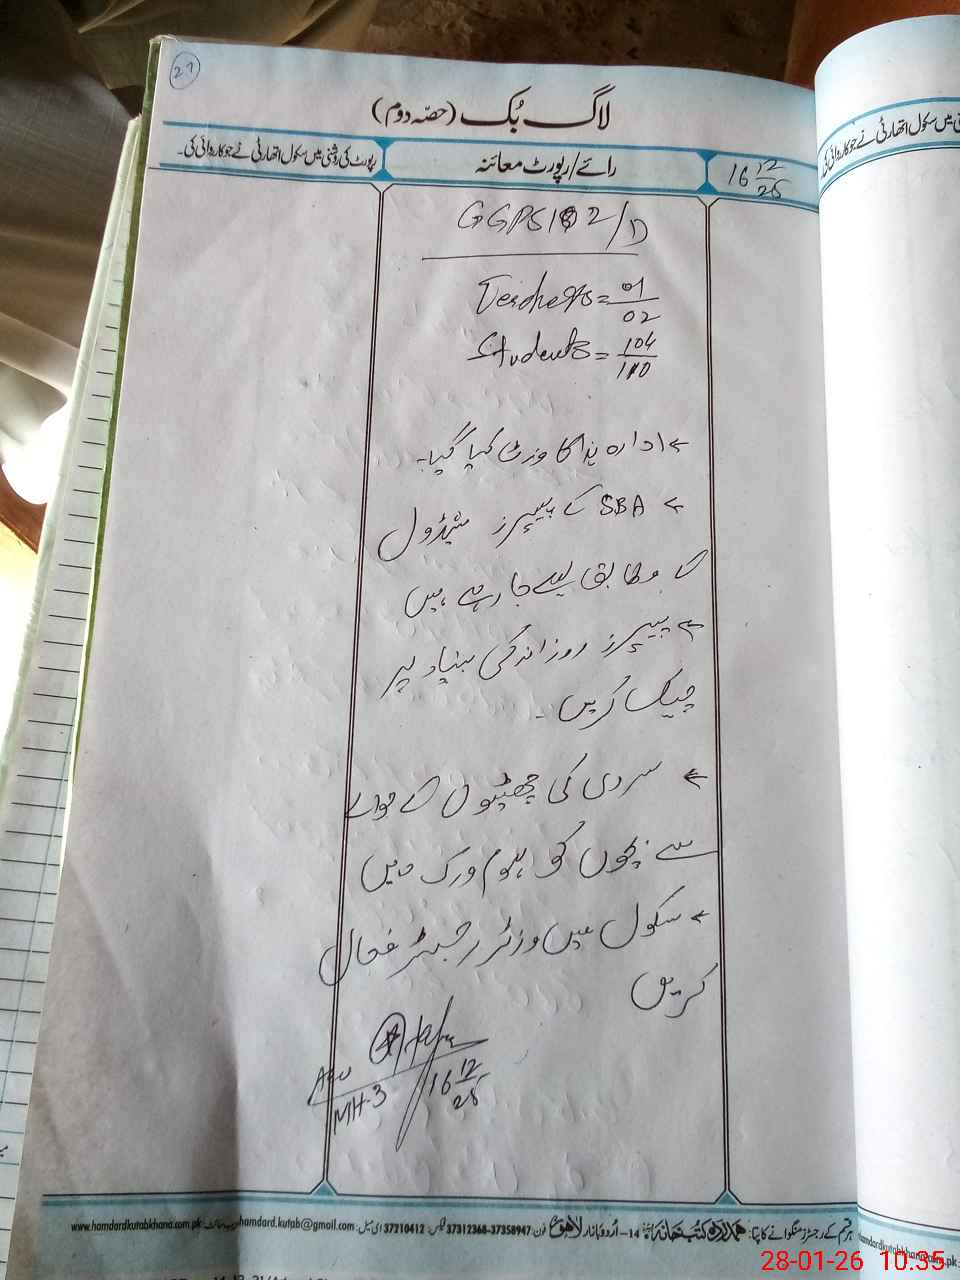 21
لاگ بُک (حصّہ دوم)
رائے/رپورٹ معائنہ
رپورٹ کی روشنی میں سکول اتھارٹی نے جو کاروائی کی۔
16 12/25
GGPS 102/D
Teachers = 01/02
Students = 104/110
→ ادارہ ہذا کا وزٹ کیا گیا۔
→ SBA کے پیپرز شیڈول
کے مطابق لیے جا رہے ہیں
→ پیپرز روزانہ کی بنیاد پر
چیک کریں۔
→ سردی کی چھٹیوں کے حوالے
سے بچوں کو ہوم ورک دیں
→ سکول میں وزٹر رجسٹر فعال
کریں
AEO
MH-3
16 12/25
ہر قسم کے رجسٹرز منگوانے کا پتا: ہمدرد کتب خانہ 14-اُردو بازار لاہور فون: 37312368-37358947 فیکس: 37210412 ای میل: hamdard.kutab@gmail.com ویب سائٹ: www.hamdardkutabkhana.com.pk
میں سکول اتھارٹی نے جو کاروائی کی
hamdardkutabkhana.com.pk
28-01-26 10:35